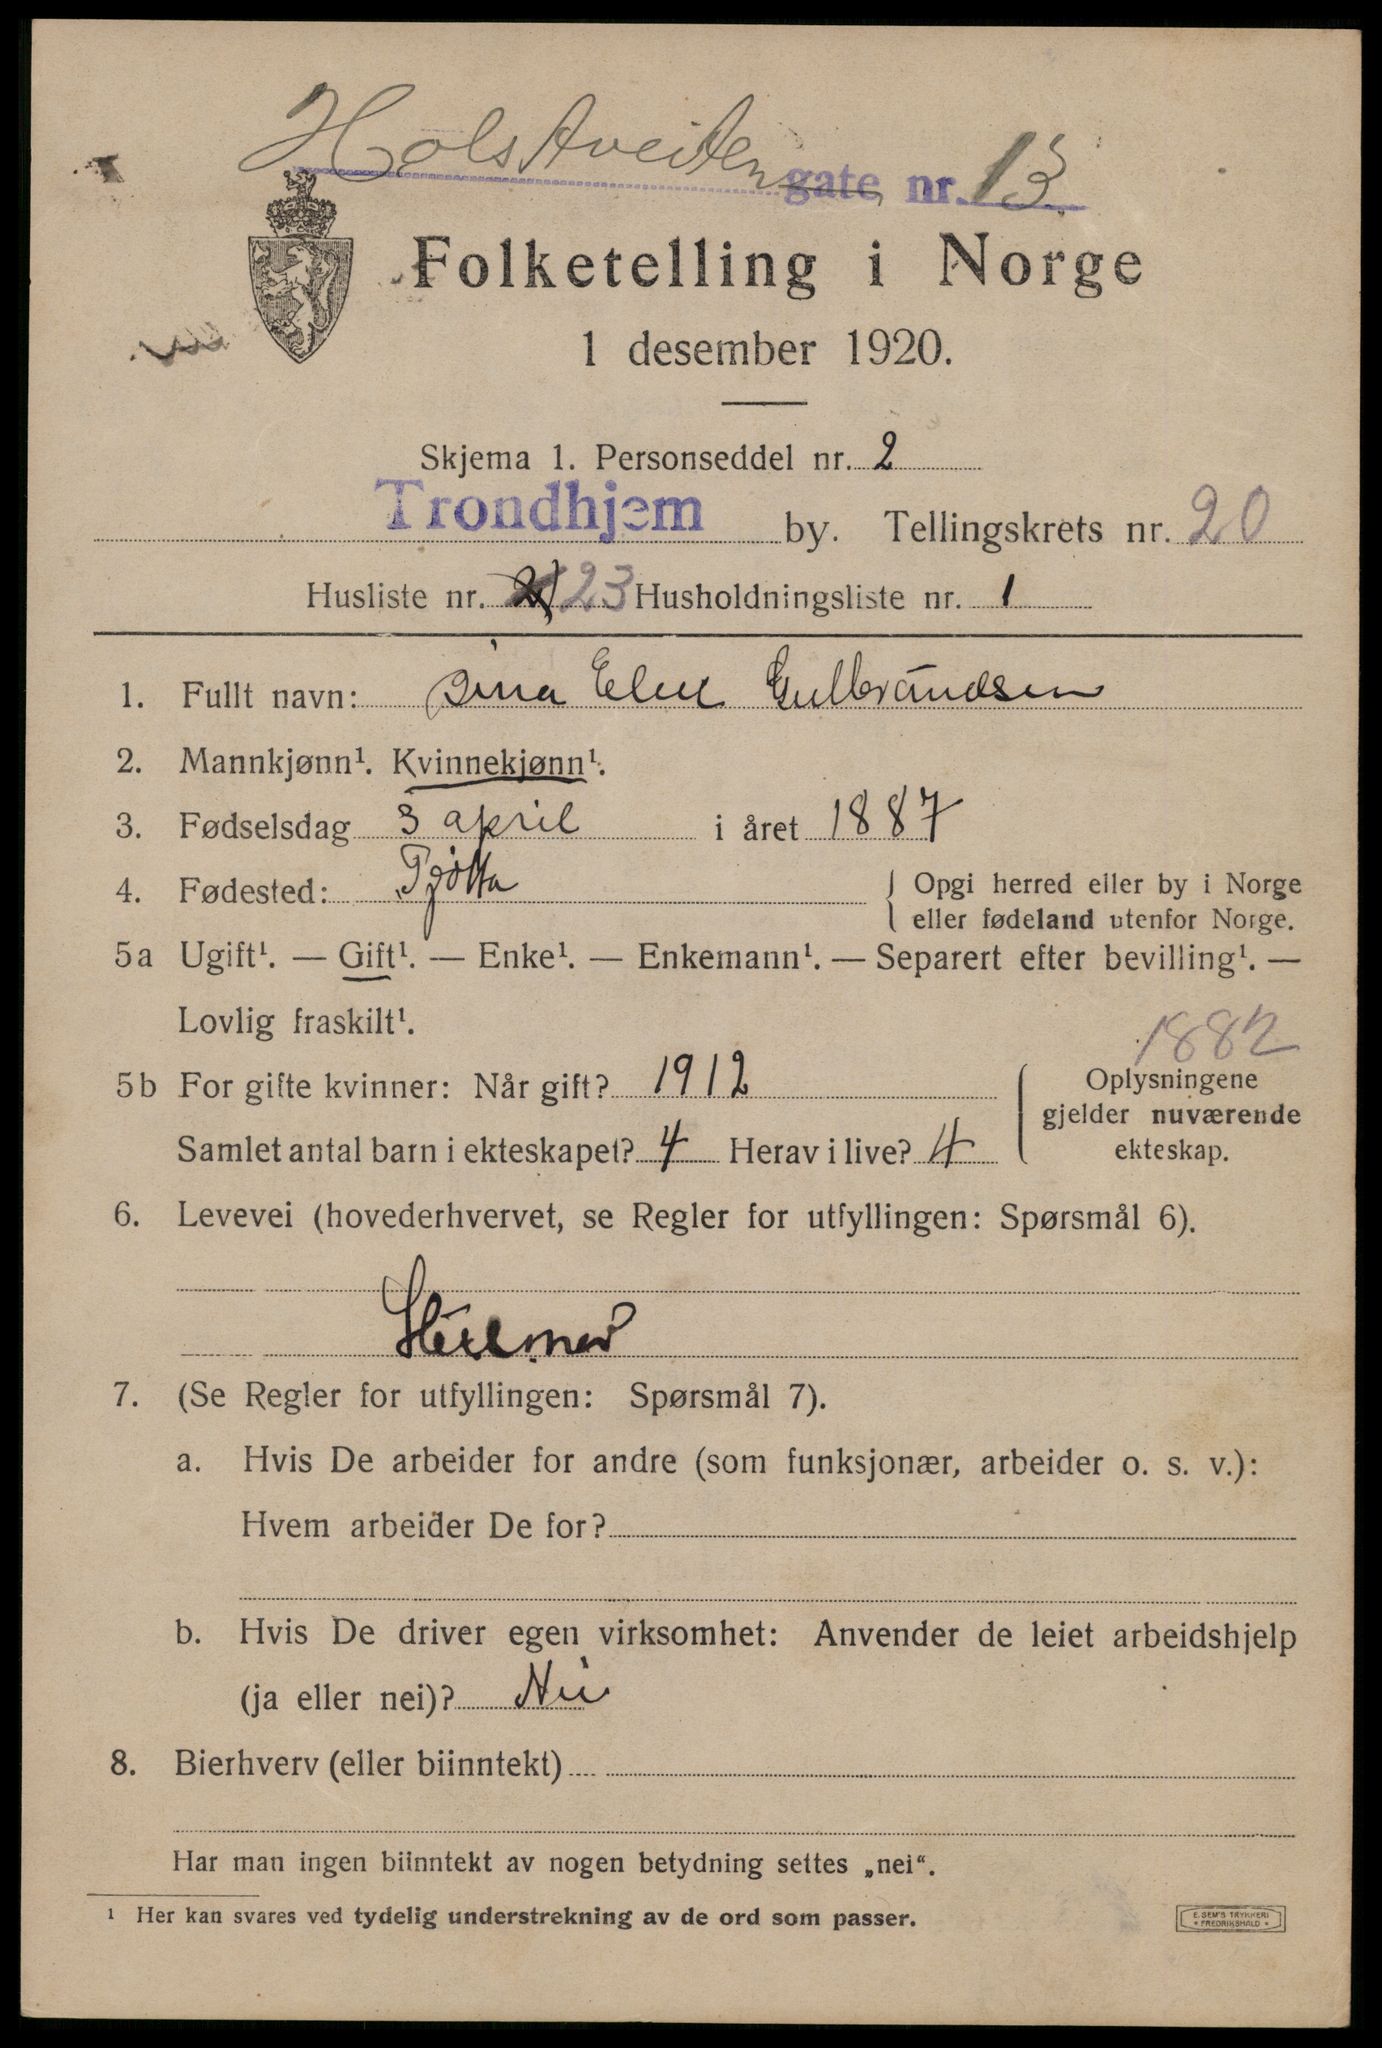 Holstveiten gate nr. 13.
Folketelling i Norge
1 desember 1920.
Skjema 1. Personseddel nr. 2
Trondhjem by. Tellingskrets nr. 20
Husliste nr. 21 23 Husholdningsliste nr. 1
1. Fullt navn: Gulbrandsen
2. Mannkjønn¹. Kvinnekjønn¹.
3. Fødselsdag 3 april i året 1887
4. Fødested: Tjøtta { Opgi herred eller by i Norge
eller fødeland utenfor Norge.
5a Ugift¹. — Gift¹. — Enke¹. — Enkemann¹. — Separert efter bevilling¹. —
Lovlig fraskilt¹.
1882
5b For gifte kvinner: Når gift? 1912
Samlet antal barn i ekteskapet? 4 Herav i live? 4
Oplysningene
gjelder nuværende
ekteskap.
6. Levevei (hovederhvervet, se Regler for utfyllingen: Spørsmål 6).
Husmor
7. (Se Regler for utfyllingen: Spørsmål 7).
a. Hvis De arbeider for andre (som funksjonær, arbeider o. s. v.):
Hvem arbeider De for?
b. Hvis De driver egen virksomhet: Anvender de leiet arbeidshjelp
(ja eller nei)? Nei
8. Bierhverv (eller biinntekt)
Har man ingen biinntekt av nogen betydning settes „nei“.
¹ Her kan svares ved tydelig understrekning av de ord som passer.
E. SEM'S TRYKKERI
* FREDRIKSHALD *